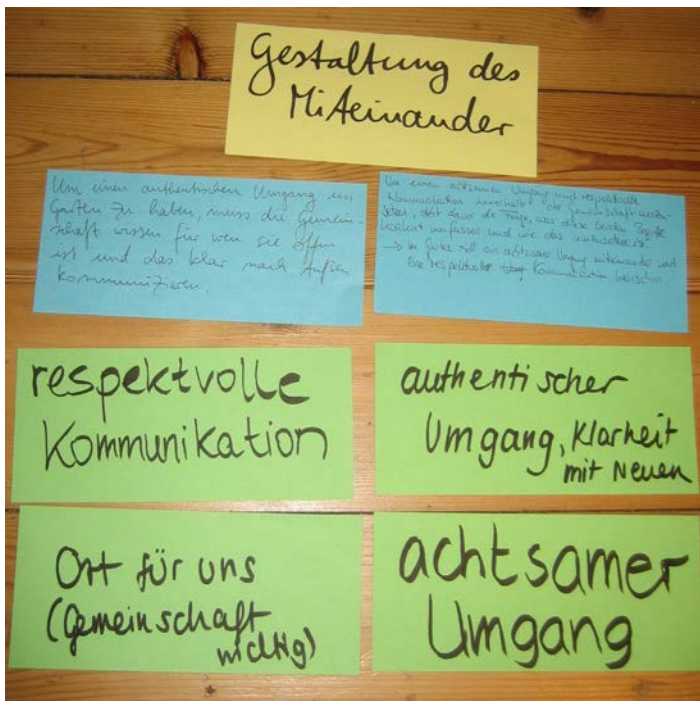 Gestaltung des
Miteinander
Um einen authentischen Umgang im
Garten zu haben, muss die Gemein-
schaft wissen für wen sie offen
ist und das klar nach Außen
kommunizieren.
Um einen achtsamen Umgang und respektvolle
Kommunikation innerhalb der Gemeinschaft
die Frage, was diese beiden Begriffe
umfassen und wie das
→ Im Garten soll ein achtsamer Umgang miteinander und
eine respektvolle Kommunikation herrschen.
respektvolle
Kommunikation
authentischer
Umgang, Klarheit
mit Neuen
Ort für uns
(Gemeinschaft
wichtig)
achtsamer
Umgang